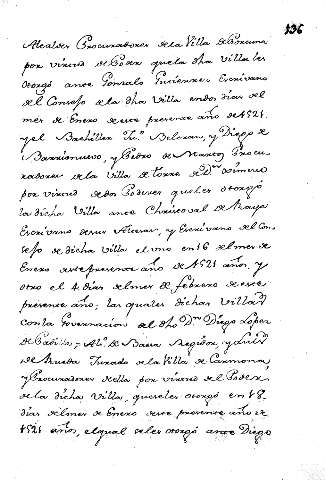 136
Alcaldes Procuradores de la Villa de Porcuna
por virtud de Poder que la dha Villa les
otorgó ante Gonzalo Gutierrez Escrivano
del Consejo de la dha Villa en dos dias del
mes de Enero de este presente año de 1521.
y el Bachiller Juº Beltran, y Diego de
Barrionuevo, y Pedro de Marcos Procu-
radores de la Villa de Torre de Dn Ximeno
por virtud de dos Poderes que les otorgó
la dicha Villa ante Christoval de Raya
Escrivano de sus Altezas, y Escrivano del Con-
sejo de dicha Villa el uno en 16 del mes de
Enero de este presente año de 1521 años, y
otro el 4 dias del mes de febrero de este
presente año: las quales dichas Villas
con la Governacion del dho Dn Diego Lopez
de Padilla, Alº de Baeza Regidor, y Luis
de Rueda Jurado de la Villa de Carmona,
y Procuradores de ella por virtud del Poder
de la dicha Villa, que se les otorgó en 18
dias del mes de Enero de este presente año de
1521 años, el qual se les otorgó ante Diego